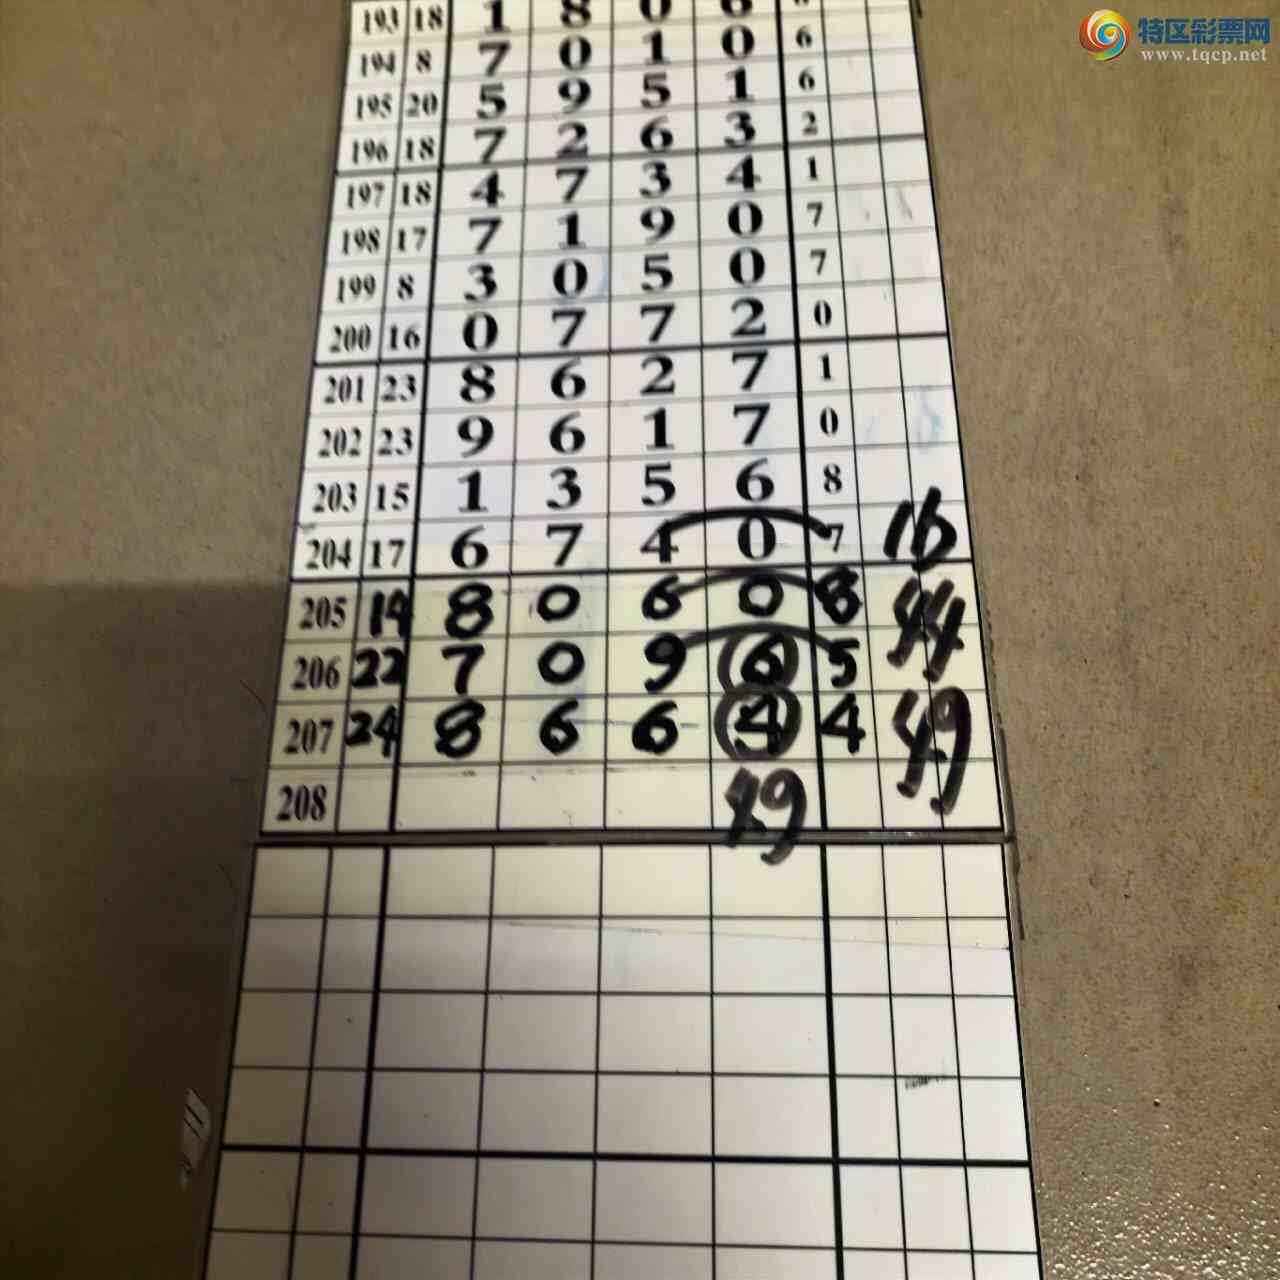 特区彩票网
www.tqcp.net
193 18 1 8 0 6
194 8 7 0 1 0 6
195 20 5 9 5 1 6
196 18 7 2 6 3 2
197 18 4 7 3 4 1
198 17 7 1 9 0 7
199 8 3 0 5 0 7
200 16 0 7 7 2 0
201 23 8 6 2 7 1
202 23 9 6 1 7 0
203 15 1 3 5 6 8
204 17 6 7 4 0 7 16
205 14 8 0 6 0 8 44
206 22 7 0 9 6 5
207 24 8 6 6 4 4 49
208 49
11